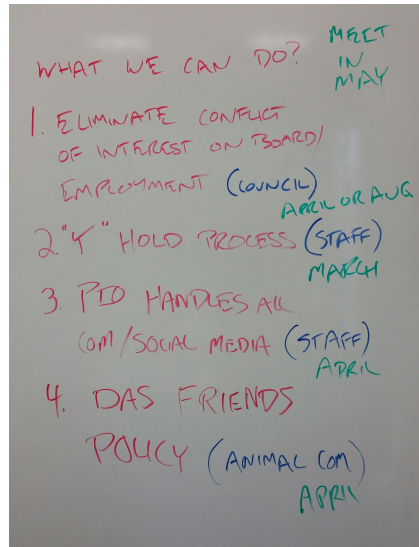 WHAT WE CAN DO?
MEET
IN
MAY
1. ELIMINATE CONFLICT
OF INTEREST ON BOARD/
EMPLOYMENT (COUNCIL)
APRIL OR AUG
2. "Y" HOLD PROCESS (STAFF)
MARCH
3. PIO HANDLES All
COM/SOCIAL MEDIA (STAFF)
APRIL
4. DAS FRIENDS
POLICY (ANIMAL COM)
APRIL